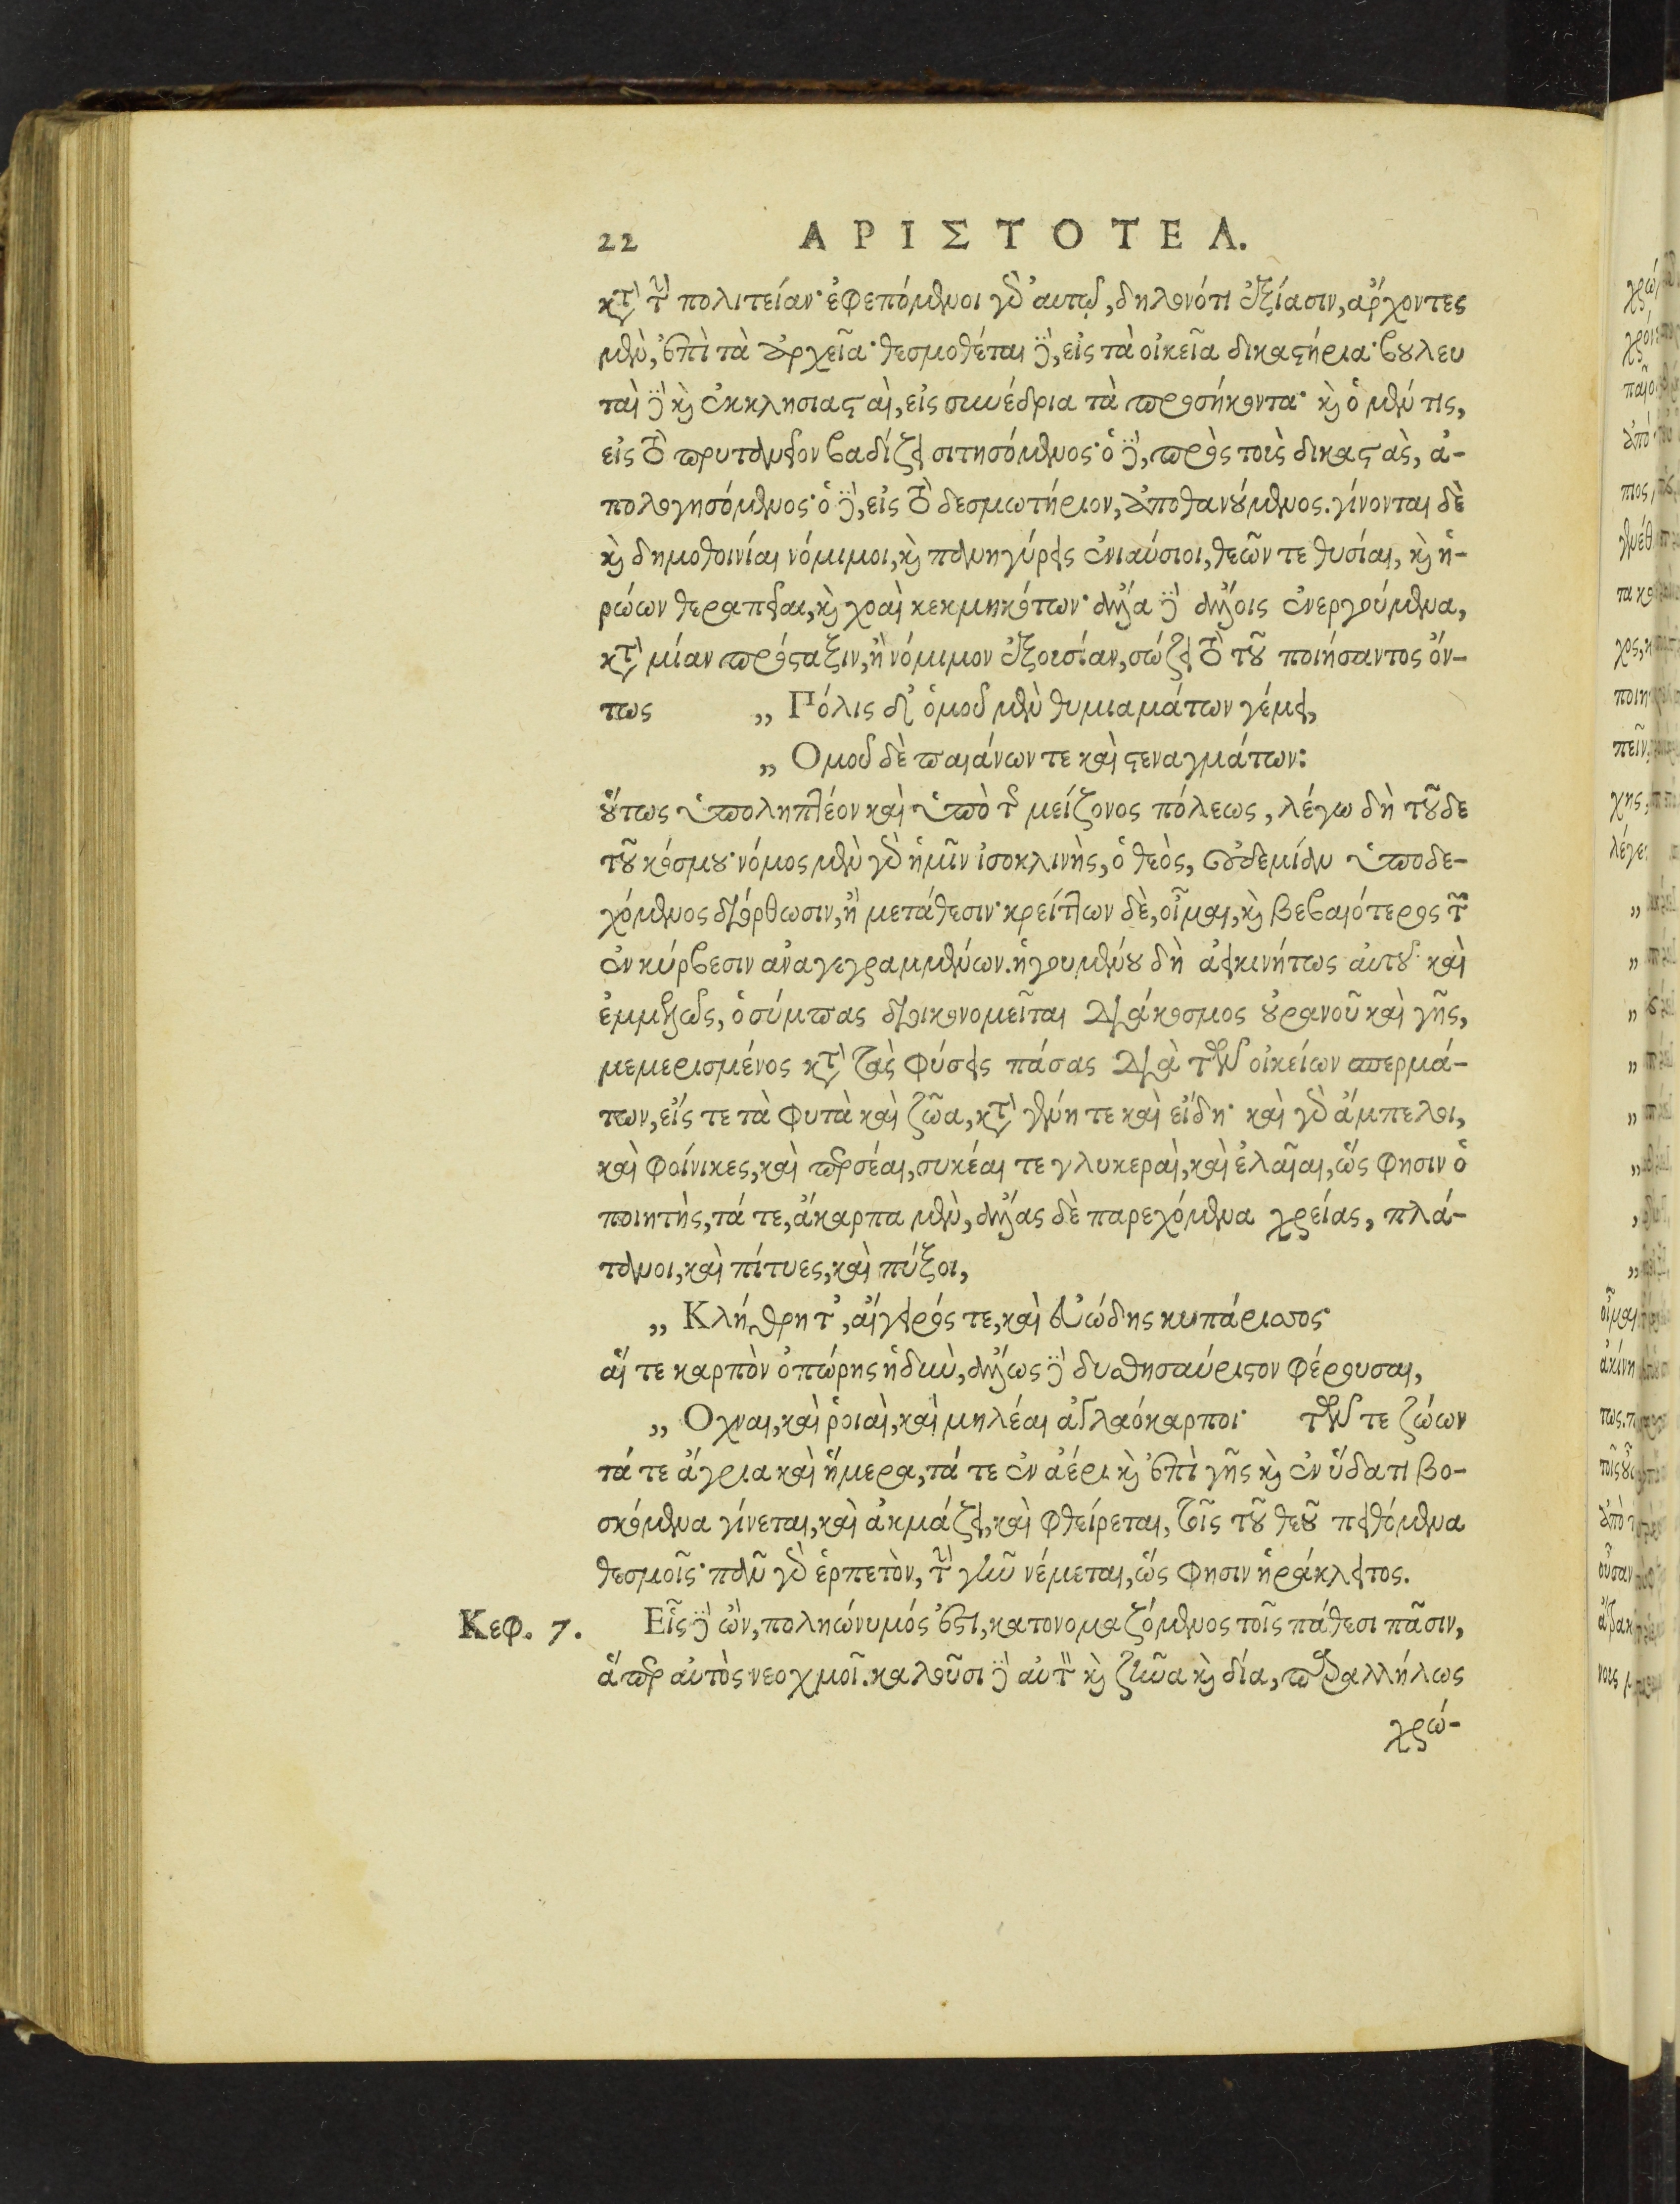 22 ΑΡΙΣΤΟΤΕΛ.
κατὰ τὴν πολιτείαν· ἐφεπόμενοι γὰρ αὐτῷ, δηλονότι ἐξίασιν, ἄρχοντες
μὲν, ἐπὶ τὰ ἀρχεῖα· θεσμοθέται δὲ, εἰς τὰ οἰκεῖα δικαστήρια· βουλευ
ταὶ δὲ καὶ ἐκκλησιασταὶ, εἰς συνέδρια τὰ προσήκοντα· καὶ ὁ μέν τις,
εἰς τὸ πρυτανεῖον βαδίζει σιτησόμενος· ὁ δὲ, πρὸς τοὺς δικαστὰς, ἀ-
πολογησόμενος· ὁ δὲ, εἰς τὸ δεσμωτήριον, ἀποθανούμενος. γίνονται δὲ
καὶ δημοθοινίαι νόμιμοι, καὶ πανηγύρεις ἐνιαύσιοι, θεῶν τε θυσίαι, καὶ ἡ-
ρώων θεραπεῖαι, καὶ χοαὶ κεκμηκότων· ἄλλα δὲ ἄλλοις ἐνεργούμενα,
κατὰ μίαν πρόσταξιν, ἢ νόμιμον ἐξουσίαν, σώζει τὸ τοῦ ποιήσαντος ὄν-
τως „ Πόλις δ' ὁμοῦ μὲν θυμιαμάτων γέμει,
„ Ομοῦ δὲ παιάνων τε καὶ στεναγμάτων:
οὕτως ὑποληπτέον καὶ ὑπὸ τῆς μείζονος πόλεως, λέγω δὴ τοῦδε
τοῦ κόσμου· νόμος μὲν γὰρ ἡμῖν ἰσοκλινὴς, ὁ θεὸς, οὐδεμίαν ὑποδε-
χόμενος διόρθωσιν, ἢ μετάθεσιν· κρείττων δὲ, οἶμαι, καὶ βεβαιότερος τῶν
ἐν κύρβεσιν ἀναγεγραμμένων. ἡγουμένου δὴ ἀεικινήτως αὐτοῦ καὶ
ἐμμελῶς, ὁ σύμπας διοικονομεῖται διάκοσμος οὐρανοῦ καὶ γῆς,
μεμερισμένος κατὰ τὰς φύσεις πάσας διὰ τῶν οἰκείων σπερμά-
των, εἴς τε τὰ φυτὰ καὶ ζῶα, κατὰ γένη τε καὶ εἴδη· καὶ γὰρ ἄμπελοι,
καὶ φοίνικες, καὶ περσέαι, συκέαι τε γλυκεραὶ, καὶ ἐλαῖαι, ὥς φησιν ὁ
ποιητὴς, τά τε, ἄκαρπα μὲν, ἄλλας δὲ παρεχόμενα χρείας, πλά-
τανοι, καὶ πίτυες, καὶ πύξοι,
„ Κλήθρη τ', αἴγειρός τε, καὶ εὐώδης κυπάρισσος·
αἵ τε καρπὸν ὀπώρης ἡδὺν, ἄλλως δὲ δυσθησαύριστον φέρουσαι,
„ Οχναι, καὶ ῥοιαὶ, καὶ μηλέαι ἀγλαόκαρποι· τῶν τε ζώων
τά τε ἄγρια καὶ ἥμερα, τά τε ἐν ἀέρι καὶ ἐπὶ γῆς καὶ ἐν ὕδατι βο-
σκόμενα γίνεται, καὶ ἀκμάζει, καὶ φθείρεται, τοῖς τοῦ θεοῦ πειθόμενα
θεσμοῖς· πᾶν γὰρ ἑρπετὸν, τὴν γῆν νέμεται, ὥς φησιν ἡράκλειτος.
Κεφ. 7. Εἷς δὲ ὢν, πολυώνυμός ἐστι, κατονομαζόμενος τοῖς πάθεσι πᾶσιν,
ἅπερ αὐτὸς νεοχμοῖ. καλοῦσι δὲ αὐτὸν καὶ ζῆνα καὶ δία, παραλλήλως
χρώ-